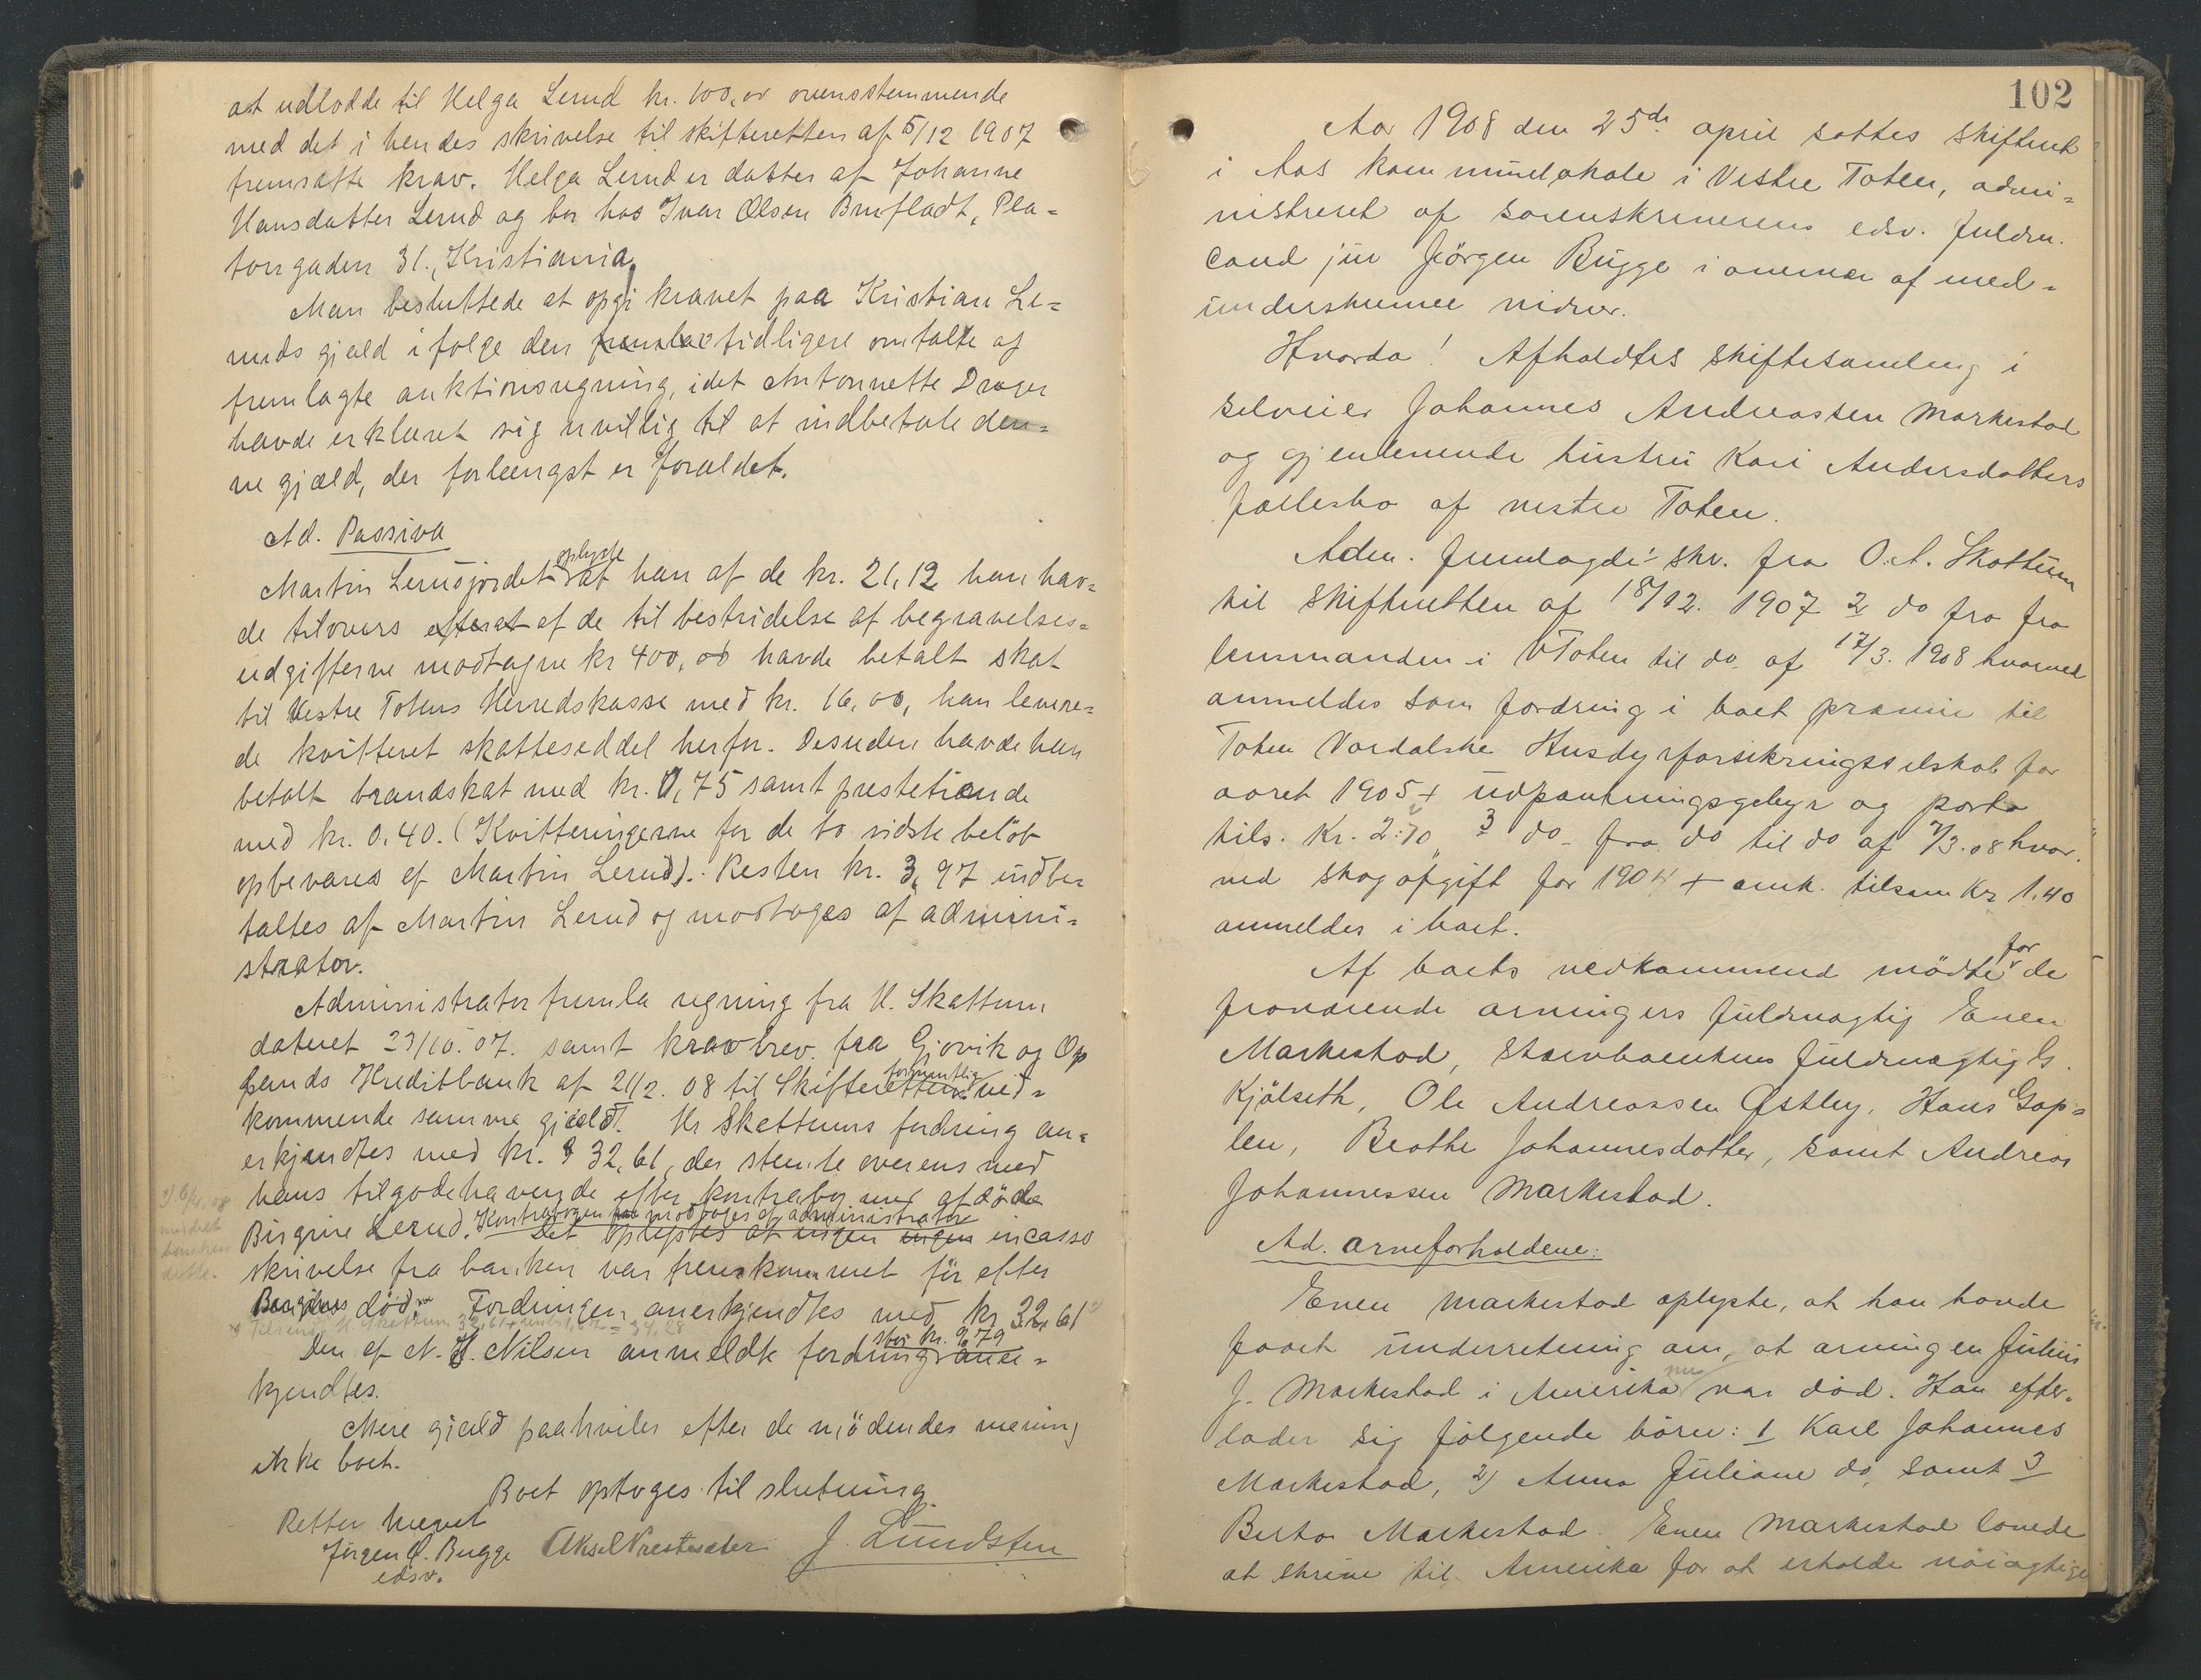 at udlodde til Helga Lerud kr. 100,00 overensstemmende
med det i hendes skrivelse til skifteretten af 5/12 1907
fremsatte krav. Helga Lerud er datter af Johanne
Hansdatter Lerud og bor hos Ivar Olsen Brufladt, Pla-
tongaden 31., Kristiania.
Man besluttede at opgi kravet paa Kristian Le-
ruds gjæld ifølge den tidligere omtalte og
fremlagte auktionsregning, idet Antonnette Drager
havde erklæret sig uvillig til at indbetale den-
ne gjæld, der forlængst er forældet.
Ad. Passiva
Martin Lerudsjordet oplyste at han af de kr. 21,12 han hav-
de tilovers efterat af de til bestridelse af begravelses-
udgifterne modtagne kr 400,00 havde betalt skat
til Vestre Totens Herredskasse med kr. 16,00, han levere-
de kvitteret skatteseddel herfor. Desuden havde han
betalt brandskat med kr. 0,75 samt prestetiende
med kr. 0.40. (Kvitteringerne for de to sidste beløb
opbevares af Martin Lerud). Resten kr. 3,97 indbe-
taltes af Martin Lerud og modtoges af admini-
strator.
Administrator fremla regning fra H. Skattum
dateret 23/10.07. samt kravbrev fra Gjøvik og Op
lands Kreditbank af 21/2. 08 til Skifteretten formentlig ved-
kommende samme gjæld. Hr Skattums fordring an-
erkjendtes med kr. 32,61, der stemte overens med
hans tilgodehavende efter kontrabog med afdøde
Birgine Lerud. Kontrabogen modtoges af administrator
Det oplystes at ingen incasso
skrivelse fra banken var fremkommet før efter
Birgines død. Fordringen anerkjendtes med kr 32,61
Den af N. H. Nilsen anmeldte fordring stor kr. 9,79 aner-
kjendtes.
Mere gjæld paahviler efter de mødendes mening
ikke boet.
Boet optoges til slutning.
Retten hævet
Jørgen Q. Bugge Aksel Præstesæter J. Lundsten
edsv.
102
Aar 1908 den 25de april sattes skifteret
i Aas kommunelokale i Vestre Toten, admi-
nistreret af sorenskriverens edsv. fuldm.
cand jur Jørgen Bugge i overvær af med-
underskrevne vidner.
Hvorda! Afholdtes skiftesamling i
selveier Johannes Andreassen Markestad
og gjenlevende hustru Kari Andersdatters
fællesbo af vestre Toten.
Adm. fremlagde: skr. fra O. A. Skattum
til skifteretten af 18/12. 1907 2 do fra fra
lensmanden i VToten til do. af 17/3. 1908 hvorved
anmeldes som fordring i boet præmie til
Toten Vardalske Husdyrforsikringsselskab for
aaret 1905 + udpantningsgebyr og porto
tils. Kr. 2:70, 3 do. fra do til do af 7/3.08 hvor-
ved skogafgift for 1904 + omk. tilsam Kr 1.40
anmeldes i boet.
Af boets vedkommend mødte for de
fraværende arvingers fuldmægtig Even
Markestad, stervboenkens fuldmægtig G.
Kjølseth, Ole Andreassen Østley, Hans Gap-
len, Beathe Johannesdatter, samt Andreas
Johannessen Markestad.
Ad. arveforholdene:
Even Markestad oplyste, at han havde
faaet underretning om, at arvingen Julius
J. Markestad i Amerika nu var død. Han efter-
lader sig følgende børn: 1 Karl Johannes
Markestad, 2) Anna Juliane do, samt 3
Berta Markestad. Even Markestad lovede
at skrive til Amerika for at erholde nøiagtige